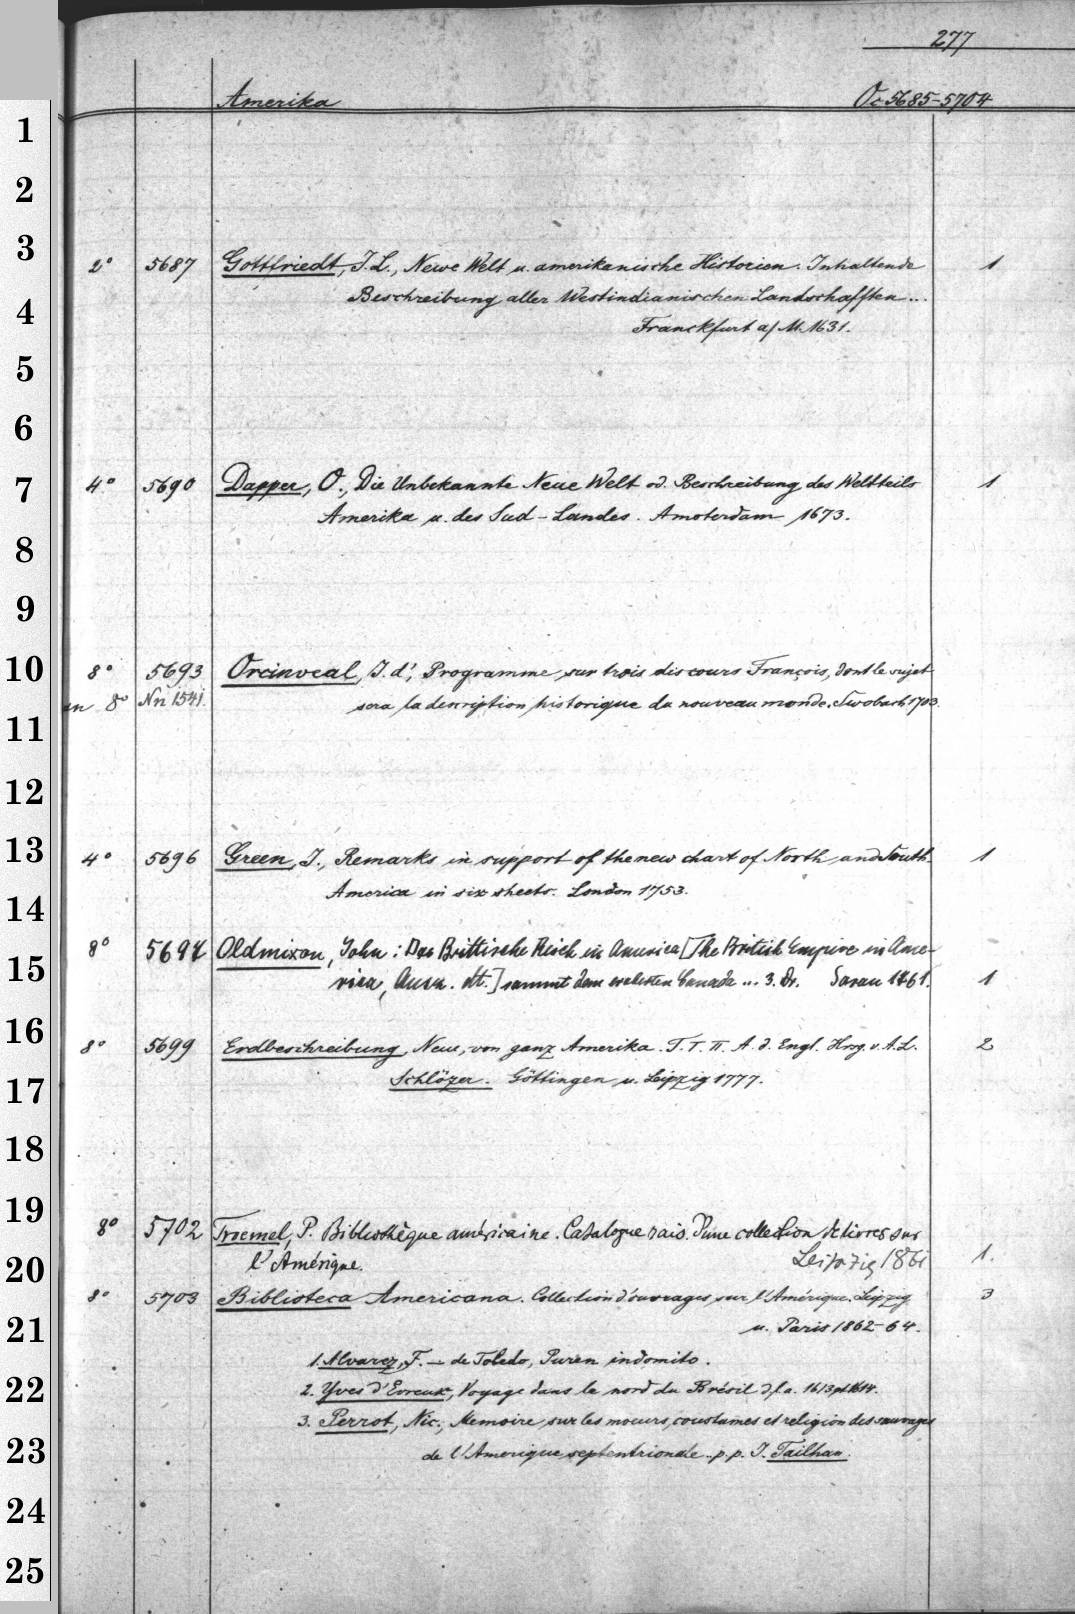 277
Amerika Oc 5685-5704
1
2
3
2° 5687 Gottfriedt, J. L., Newe Welt u. amerikanische Historien. Inhaltende 1
4
Beschreibung aller Westindianischen Landschafften...
Franckfurt a/M. 1631.
5
6
7
4° 5690 Dapper, O., Die Unbekannte Neue Welt od. Beschreibung des Weltteils 1
Amerika u. des Sud-Landes. Amsterdam 1673.
8
9
10
8° 5693 Orcinveal, J. d', Programme sur trois discours François, dont le sujet
an 8° Nn 1541. sera la description historique du nouveau monde. Swobach 1703.
11
12
13
4° 5696 Green, J., Remarks in support of the new chart of North and South 1
America in six sheets. London 1753.
14
8° 5697 Oldmixon, John: Das Brittische Reich in America [The British Empire in Ame-
15
rica, Ausz. dt.] sammt dem eroberten Canada ... 3. Dr. Sorau 1761. 1
16
8° 5699 Erdbeschreibung, Neue, von ganz Amerika. T. I. II. A. d. Engl. Hrsg. v. A. L. 2
17
Schlözer. Göttingen u. Leipzig 1777.
18
19
8° 5702 Troemel, P. Bibliothèque américaine. Catalogue rais. d'une collection de livres sur
20
l'Amérique. Leipzig 1861 1.
8° 5703 Biblioteca Americana. Collection d'ouvrages sur l'Amérique. Leipzig 3
21
u. Paris 1862-64.
1. Alvarez, F. – de Toledo, Puren indomito.
22
2. Yves d'Evreux, Voyage dans le nord du Brésil d. l. a. 1613 et 1614.
3. Perrot, Nic., Memoire sur les moeurs, coustumes et religion des sauvages
23
de l'Amerique septentrionale. p. p. J. Tailhan.
24
25